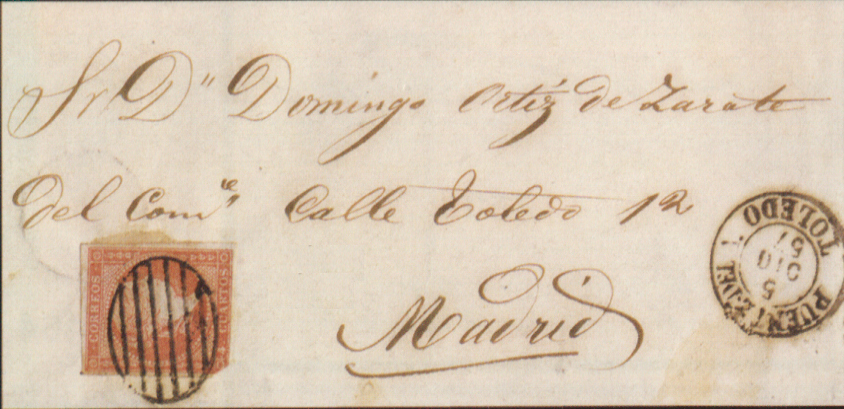 Sr Dn Domingo Ortiz de Zarate
del Come Calle Toledo 12
Madrid
CORREOS
4 CUARTOS
TOLEDO
5
DIC
57
PUENTE DEL